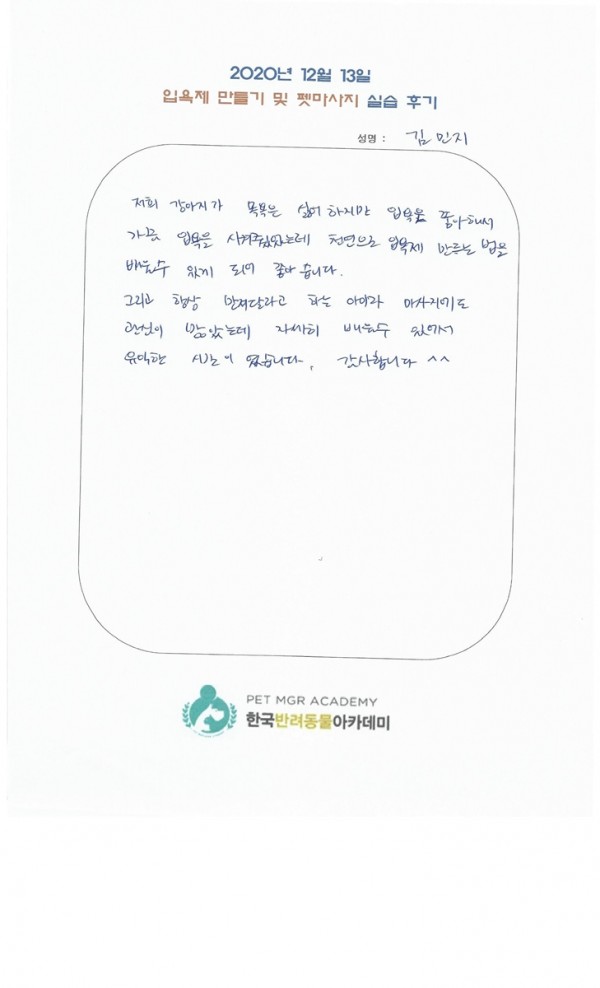 2020년 12월 13일
입욕제 만들기 및 펫마사지 실습 후기
성명 : 김민지
저희 강아지가 목욕은 싫어 하지만 입욕을 좋아해서
가끔 입욕을 시켜줬었는데 천연으로 입욕제 만드는 법을
배울수 있게 되어 좋아습니다.
그리고 항상 만져달라고 하는 아이라 마사지에도
관심이 많았는데 자세히 배울수 있어서
유익한 시간이 었습니다. 감사합니다 ^^
PET MGR ACADEMY
한국반려동물아카데미